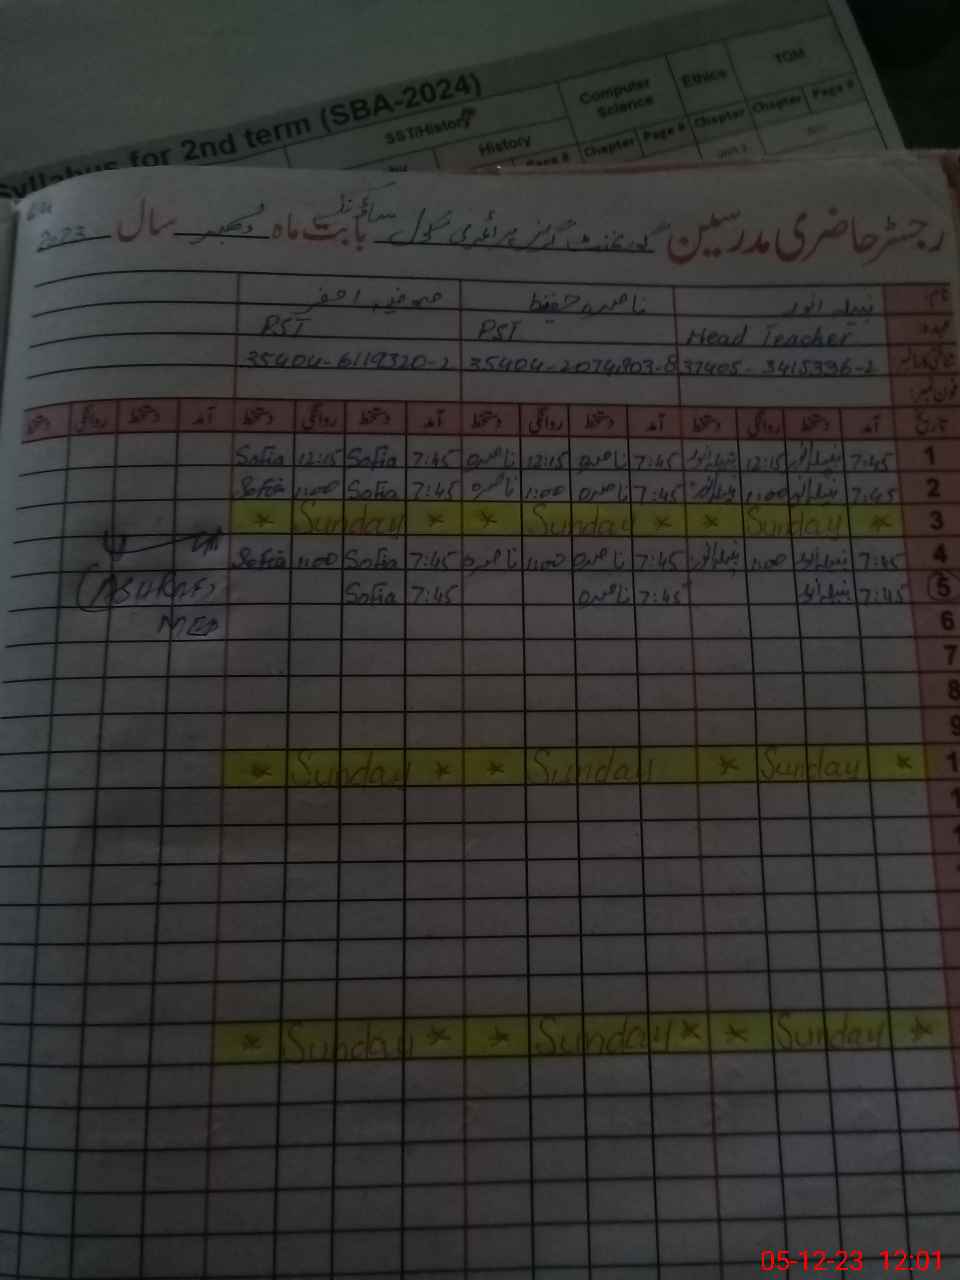 Syllabus for 2nd term (SBA-2024)
SST/History Computer Science Ethics TGM
History Chapter Page # Chapter Chapter Page #
Page #
رجسٹر حاضری مدرسین گورنمنٹ گرلز پرائمری سکول بابت ماہ دسمبر سال 2023
نام: نبیلہ انور ناصرہ حفیظ صوفیہ
عہدہ Head Teacher PST PST
37405-3415396-2 35404-2074803-8 35404-6119320-2
فون نمبر:
تاریخ آمد دستخط روانگی دستخط آمد دستخط روانگی دستخط آمد دستخط روانگی دستخط آمد دستخط روانگی دستخط
1 7:45 نبیلہ انور 12:15 نبیلہ انور 7:45 ناصرہ 12:15 ناصرہ 7:45 Sofia 12:15 Sofia
2 7:45 نبیلہ انور 1:00 نبیلہ انور 7:45 ناصرہ 1:00 ناصرہ 7:45 Sofia 1:00 Sofia
3 * Sunday * * Sunday * * Sunday *
4 7:45 نبیلہ انور 1:00 نبیلہ انور 7:45 ناصرہ 1:00 ناصرہ 7:45 Sofia 1:00 Sofia
5 7:45 نبیلہ انور 7:45 ناصرہ 7:45 Sofia
6
7
8
9
1 * Sunday * * Sunday * Sunday *
1
1
* Sunday * * Sunday * * Sunday *
05-12-23 12:01